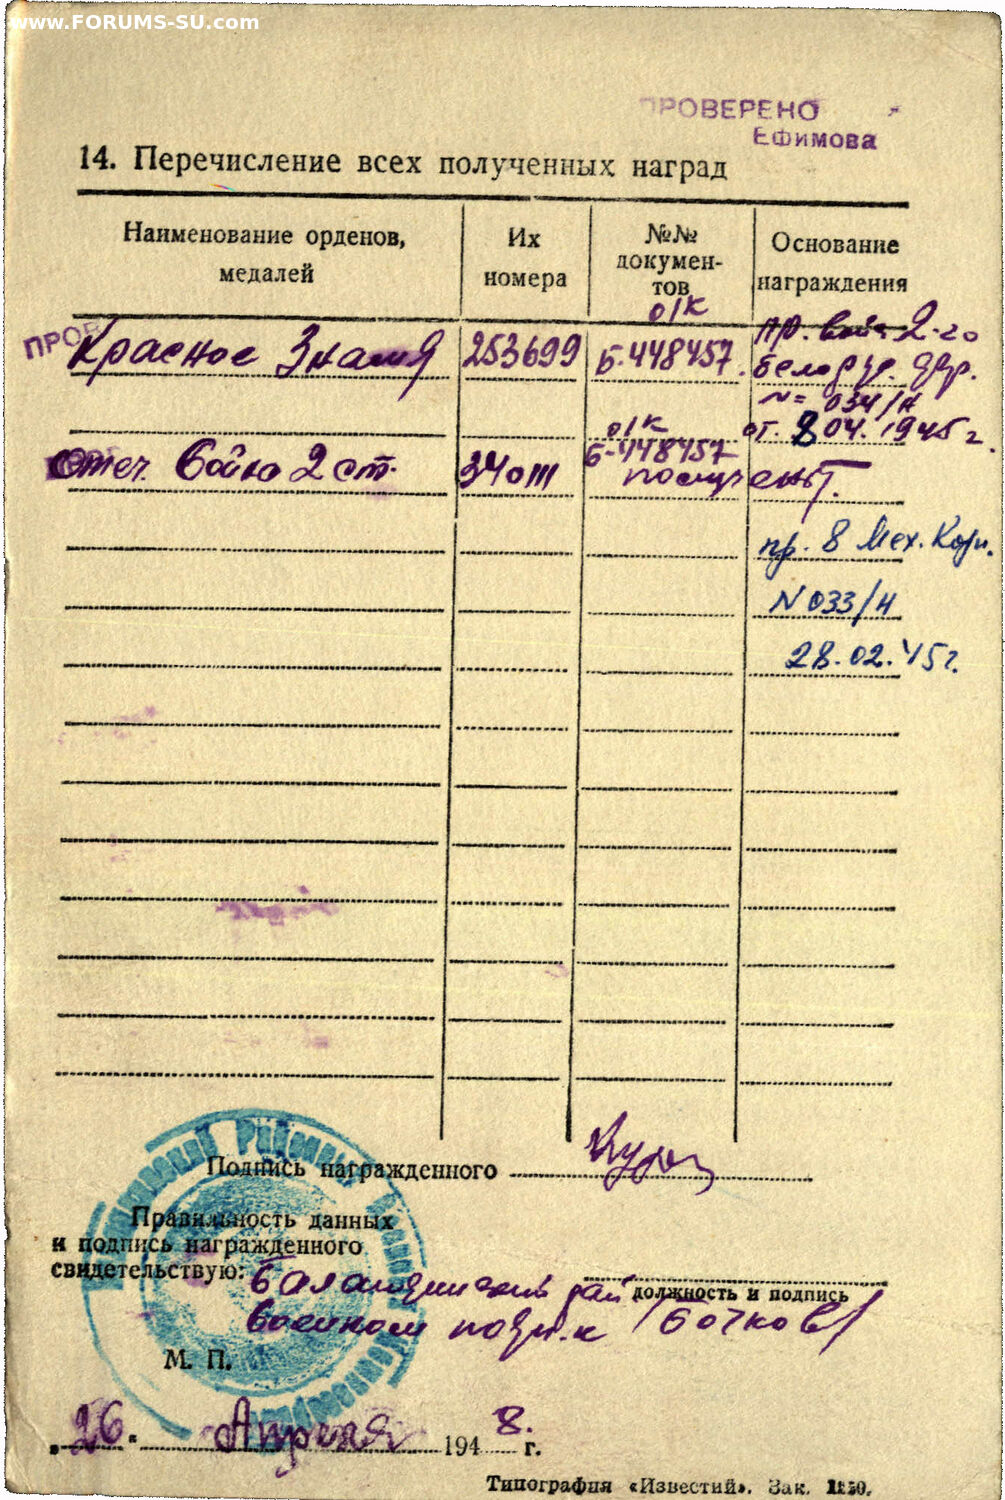 www.FORUMS-SU.com
ПРОВЕРЕНО
Ефимова
14. Перечисление всех полученных наград
Наименование орденов, медалей
Их номера
№№ документов
Основание награждения
ПРОВ
Красное Знамя 253699 о/к Б-448457 пр. войск 2-го
Белор. фр.
N= 034/н
от. 8 04. 1945 г.
Отеч. войны 2 ст. 340111 о/к Б-448457
пр. 8 Мех. Корп.
N 033/н
28.02.45 г.
Подпись награжденного
Правильность данных
и подпись награжденного
свидетельствую:
должность и подпись
рай
военком подп-к /Бочков/
М. П.
„26“ Апреля 1948. г.
Типография «Известий». Зак. 1150.